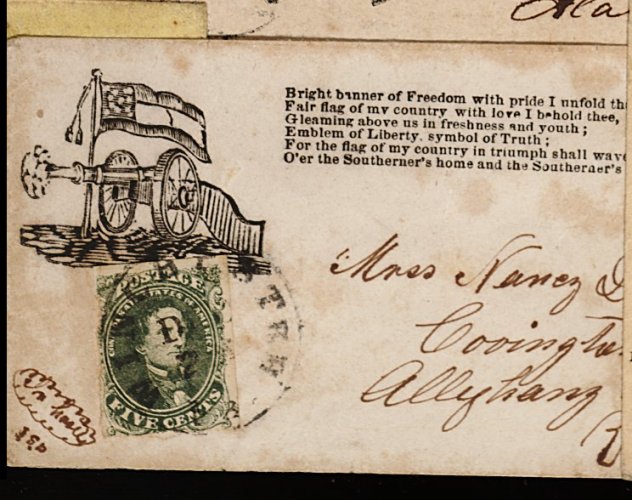 Ala
Bright banner of Freedom with pride I unfold th
Fair flag of my country with love I behold thee,
Gleaming above us in freshness and youth;
Emblem of Liberty, symbol of Truth;
For the flag of my country in triumph shall wave
O'er the Southerner's home and the Southerner's
Mrs Nancy
Covington
Alleghany
POSTAGE
CONFEDERATE STATES OF AMERICA
FIVE CENTS
D